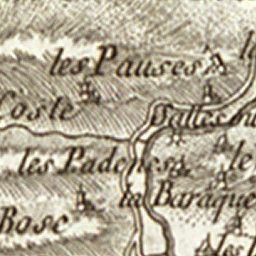 les Pauses
Coste
les Padenes
le
la Baraque
Bosc